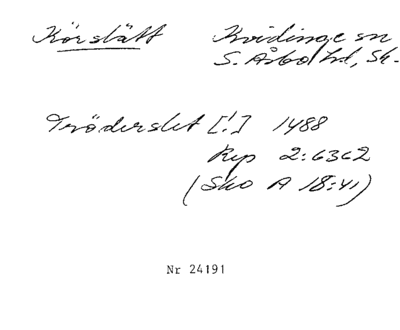 Körslätt Kvidinge sn
S. Åsbo hd, Sk.
Tröderslet [!] 1488
Rep 2:6362
(Sko A 18:41)
Nr 24191